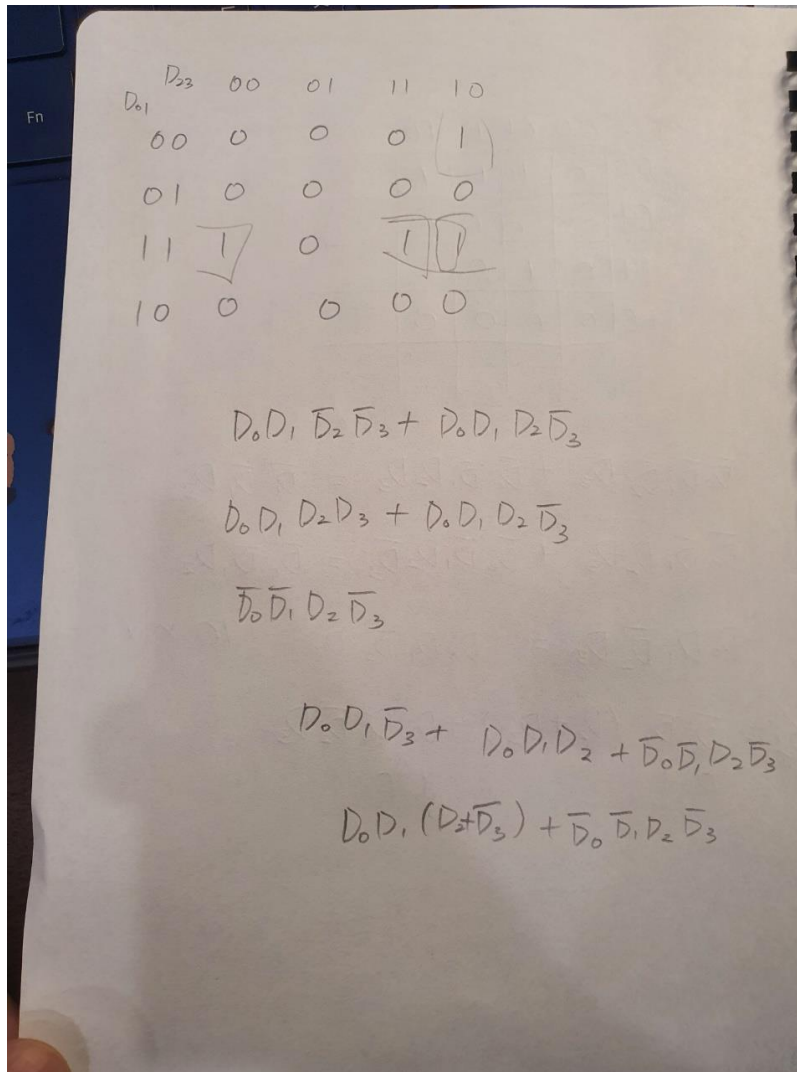 Fn
D₂₃ 00 01 11 10
D₀₁
00 0 0 0 1
01 0 0 0 0
11 1 0 1 1
10 0 0 0 0
D₀D₁D̅₂D̅₃ + D₀D₁D₂D̅₃
D₀D₁D₂D₃ + D₀D₁D₂D̅₃
D̅₀D̅₁D₂D̅₃
D₀D₁D̅₃ + D₀D₁D₂ + D̅₀D̅₁D₂D̅₃
D₀D₁(D₂+D̅₃) + D̅₀D̅₁D₂D̅₃